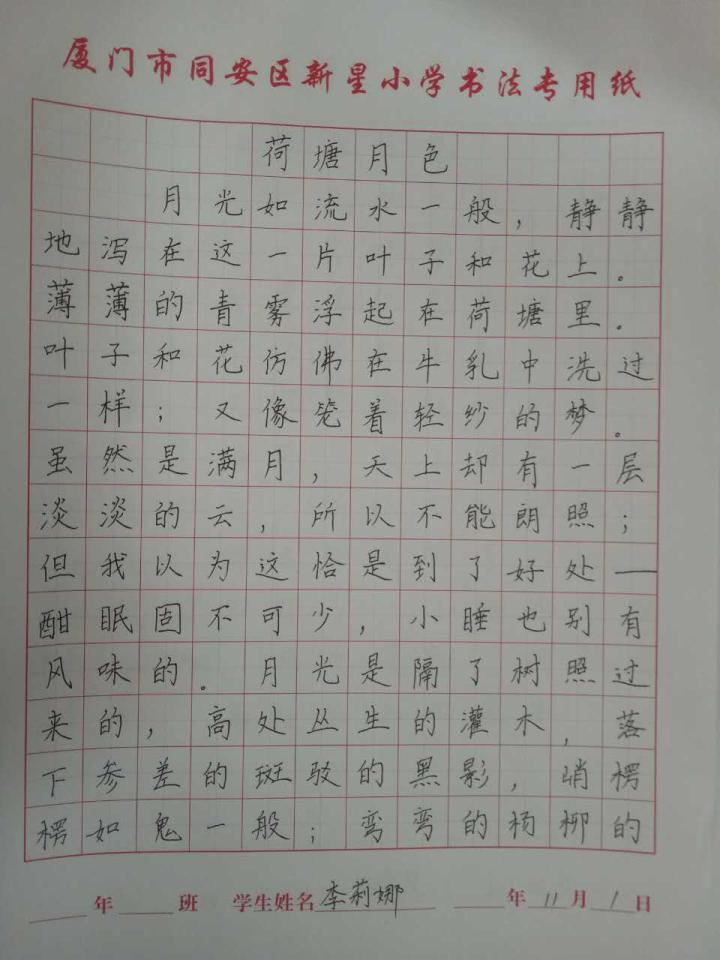 厦门市同安区新星小学书法专用纸
荷塘月色
月光如流水一般，静静
地泻在这一片叶子和花上。
薄薄的青雾浮起在荷塘里。
叶子和花仿佛在牛乳中洗过
一样；又像笼着轻纱的梦。
虽然是满月，天上却有一层
淡淡的云，所以不能朗照；
但我以为这恰是到了好处—
酣眠固不可少，小睡也别有
风味的。月光是隔了树照过
来的，高处丛生的灌木，落
下参差的斑驳的黑影，峭楞
楞如鬼一般；弯弯的杨柳的
年 班 学生姓名 李莉娜 年 11 月 1 日